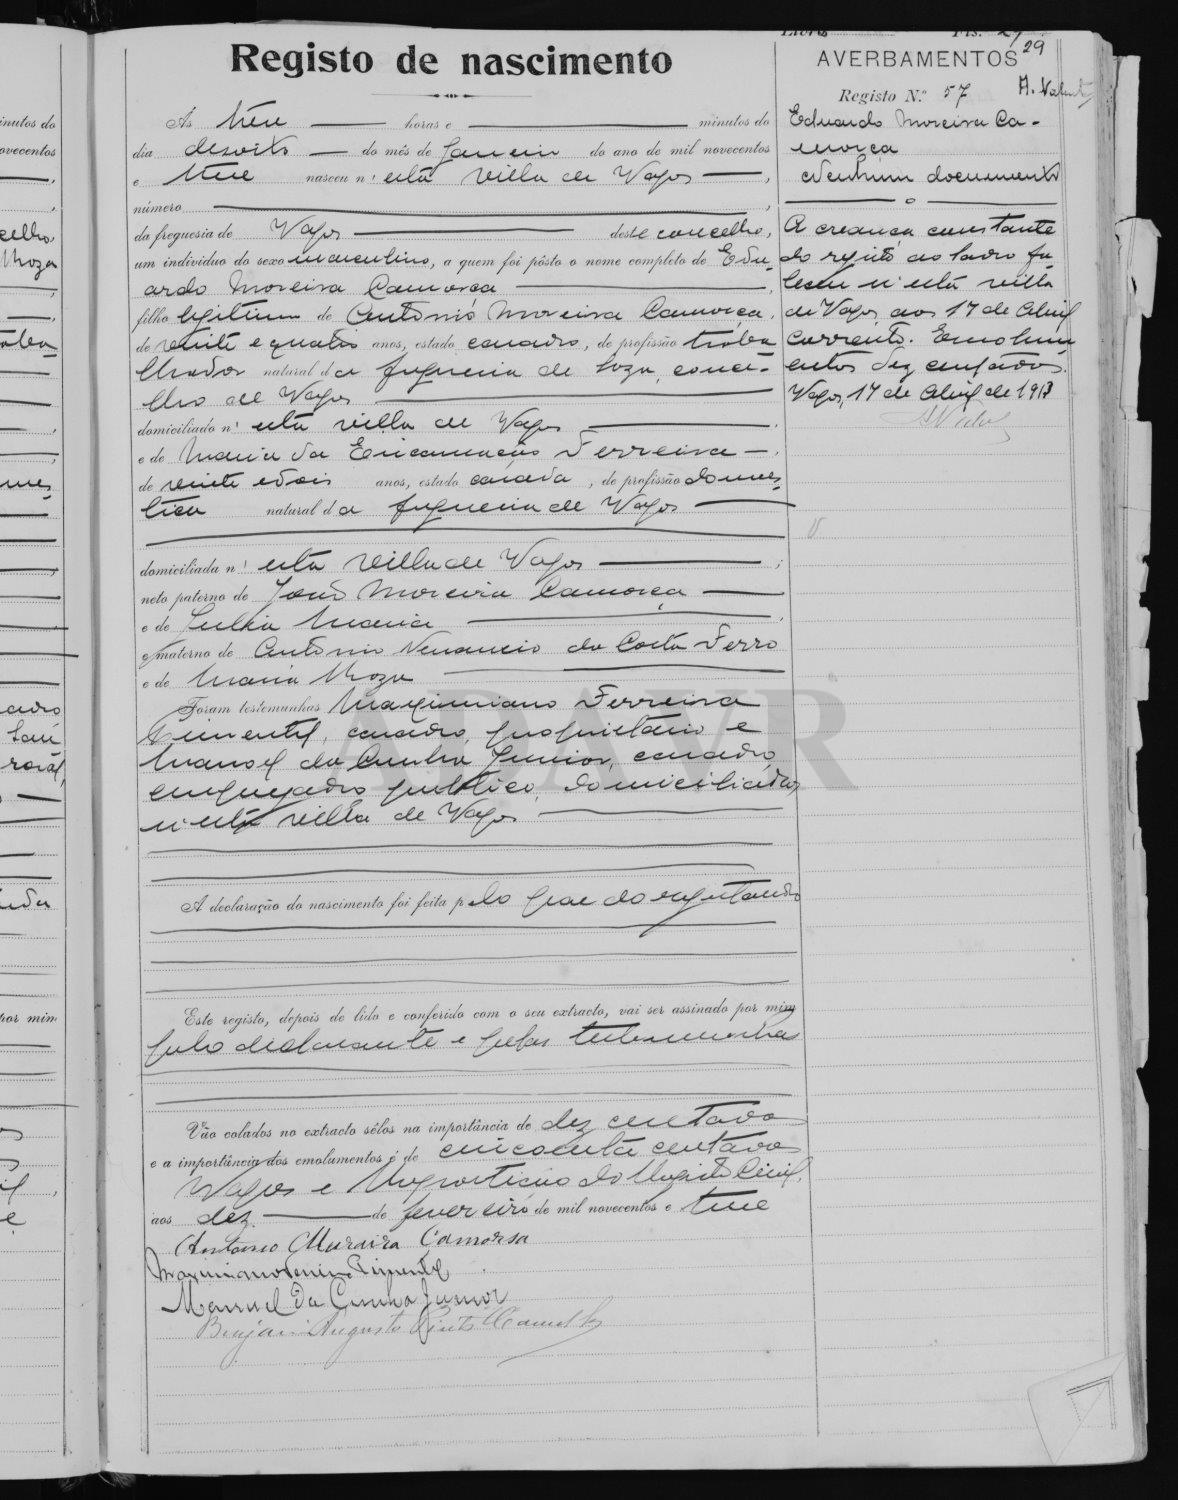 Livro Fls. 29
29
Registo de nascimento
AVERBAMENTOS
Registo N.º 57
Às horas e minutos do
dia desoito do mês de Janeiro do ano de mil novecentos
e treze nasceu n'esta villa de Vagos,
número
da freguesia de Vagos deste concelho,
um indivíduo do sexo masculino, a quem foi pôsto o nome completo de Edu-
ardo Moreira Camorça
filho legitimo de Antonio Moreira Camorça,
de vinte e quatro anos, estado casado, de profissão traba-
lhador natural da freguesia de Soza, conce-
lho de Vagos
domiciliado n'esta villa de Vagos
e de Maria da Encarnação Ferreira
de vinte e dois anos, estado casada, de profissão domes-
tica natural da freguesia de Vagos
domiciliada n'esta villa de Vagos;
neto paterno de João Moreira Camorça
e de Julia Maria
e materno de Antonio Venancio da Costa Ferro
e de Maria Roza
Foram testemunhas Maximiano Ferreira
Pimentel, casado, proprietario e
Manoel da Cunha Junior, casado,
empregado publico, domiciliados
n'esta villa de Vagos
A declaração do nascimento foi feita pelo pae do registando
Este registo, depois de lido e conferido com o seu extracto, vai ser assinado por mim
pelo declarante e pelas testemunhas
Vão colados no extracto sêlos na importância de dez centavos
e a importância dos emolumentos é de cincoenta centavos
Vagos e Repartição do Registo Civil,
aos dez de fevereiro de mil novecentos e treze
Antonio Moraira Camorsa
Maximiano Ferreira Pimentel
Manuel da Cunha Junior
Augusto
Eduardo Moreira Ca-
morça
Nenhum documento
A creança constante
do registo ao lado fa-
leceu n'esta villa
de Vagos aos 17 de Abril
corrente. Emolum-
entos dez centavos.
Vagos, 17 de Abril de 1913
ADAVR